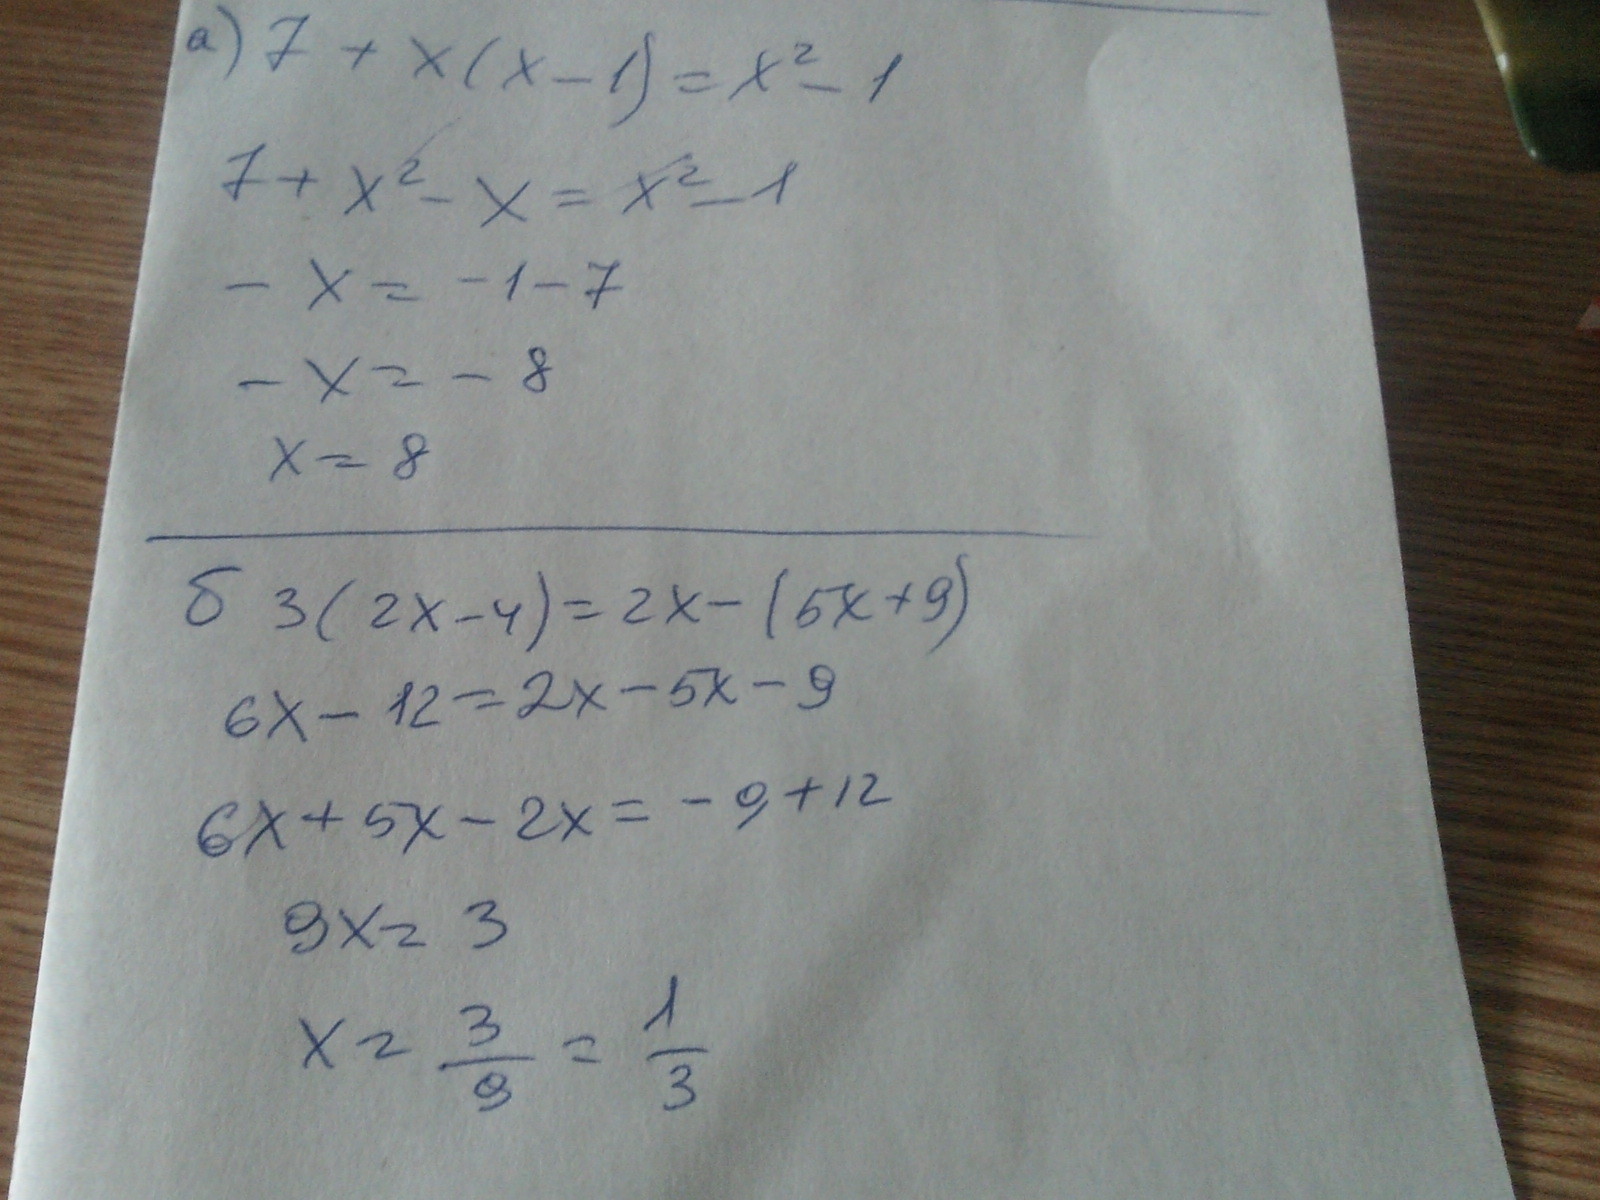 а) 7 + x(x-1) = x²-1
7 + x² - x = x² - 1
- x = -1-7
- x = - 8
x = 8
б 3(2x-4) = 2x - (5x+9)
6x - 12 = 2x - 5x - 9
6x + 5x - 2x = - 9 + 12
9x = 3
x = 3/9 = 1/3